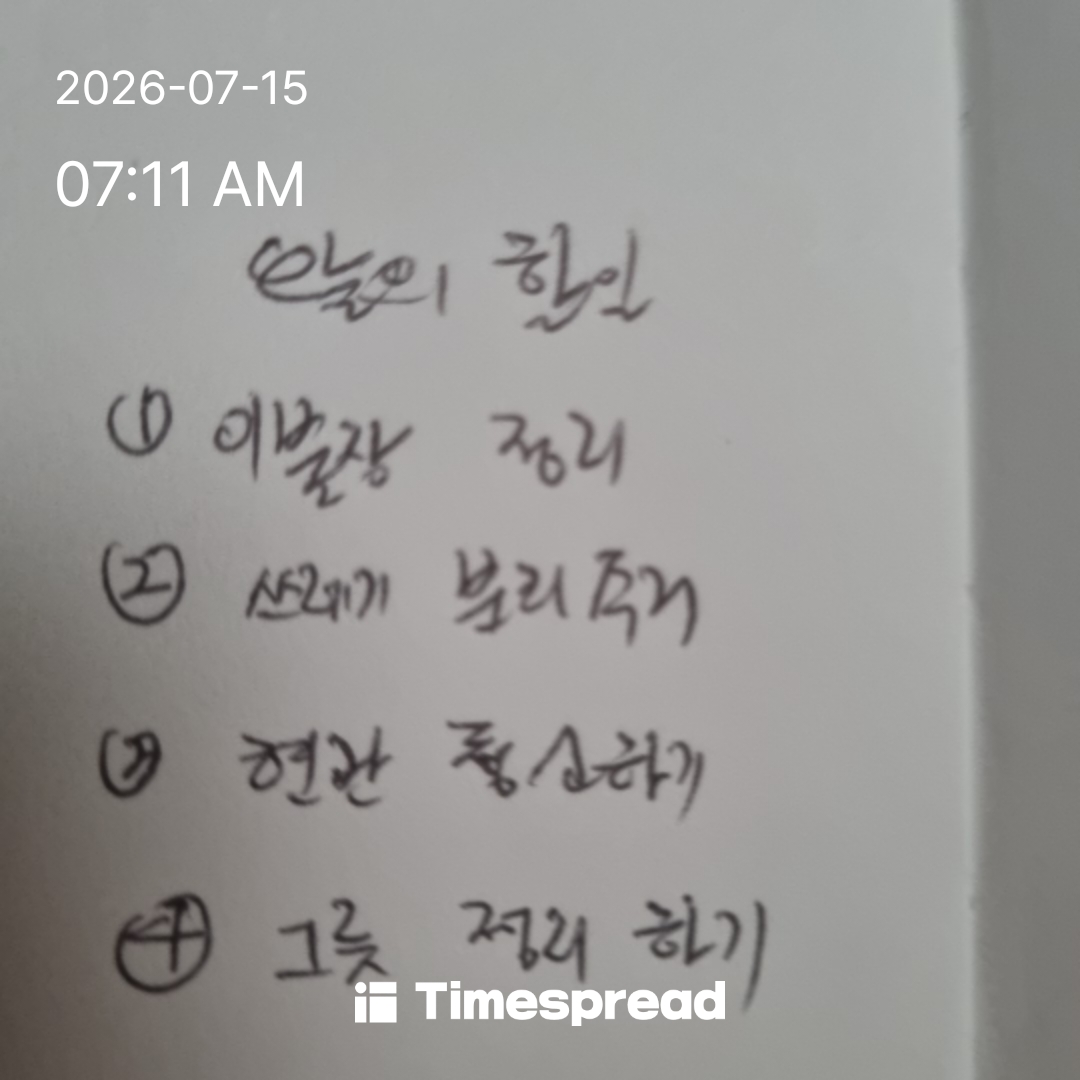 2026-07-15
07:11 AM
오늘의 할일
① 이불장 정리
② 쓰레기 분리
③ 현관 청소하기
④ 그릇 정리 하기
Timespread